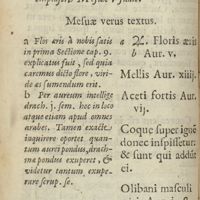 Mesuæ verus textus.
a Flos æris à nobis satis
in prima Sectione cap. 9.
explicatus fuit, sed quia
caremus dicto flore, viri-
de æs sumendum erit.
b Per aureum intellige
drach. j. sem. hoc in loco
atque etiam apud omnes
arabes. Tamen exacte
inquirere oportet quan-
tum aurei pondus, drach-
ma pondus exuperet, &
videtur tantum exupe-
rare scrup. se.
a ℞. Floris æris
b Aur. v.
Mellis Aur. xiiij.
Aceti fortis Aur.
vij.
Coque super igne
donec inspisset
& sunt qui addūt
ei.
Olibani masculi